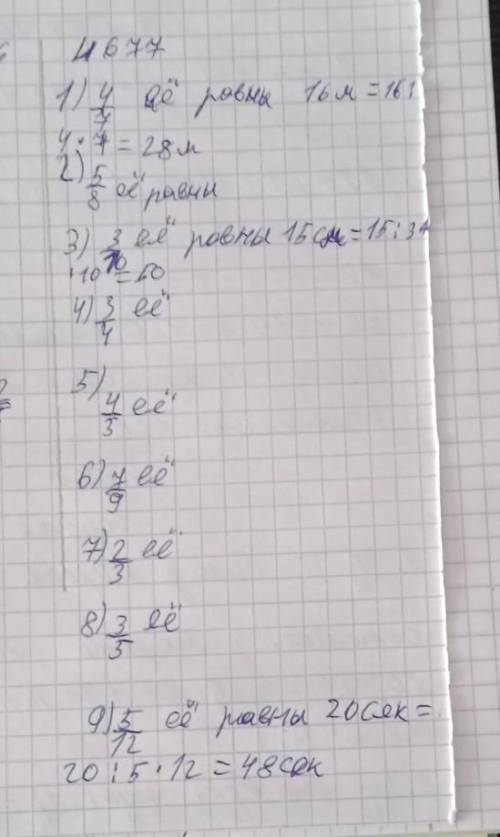 4677
1) 4/7 её равны 16м = 16:
4·7 = 28м
2) 5/8 её равны
3) 3/10 её равны 15см = 15:3
·10 = 50
4) 3/4 её
5)
4/5 её
6) 7/9 её
7) 2/3 её
8) 3/5 её
9) 5/12 её равны 20сек =
20:5·12 = 48сек